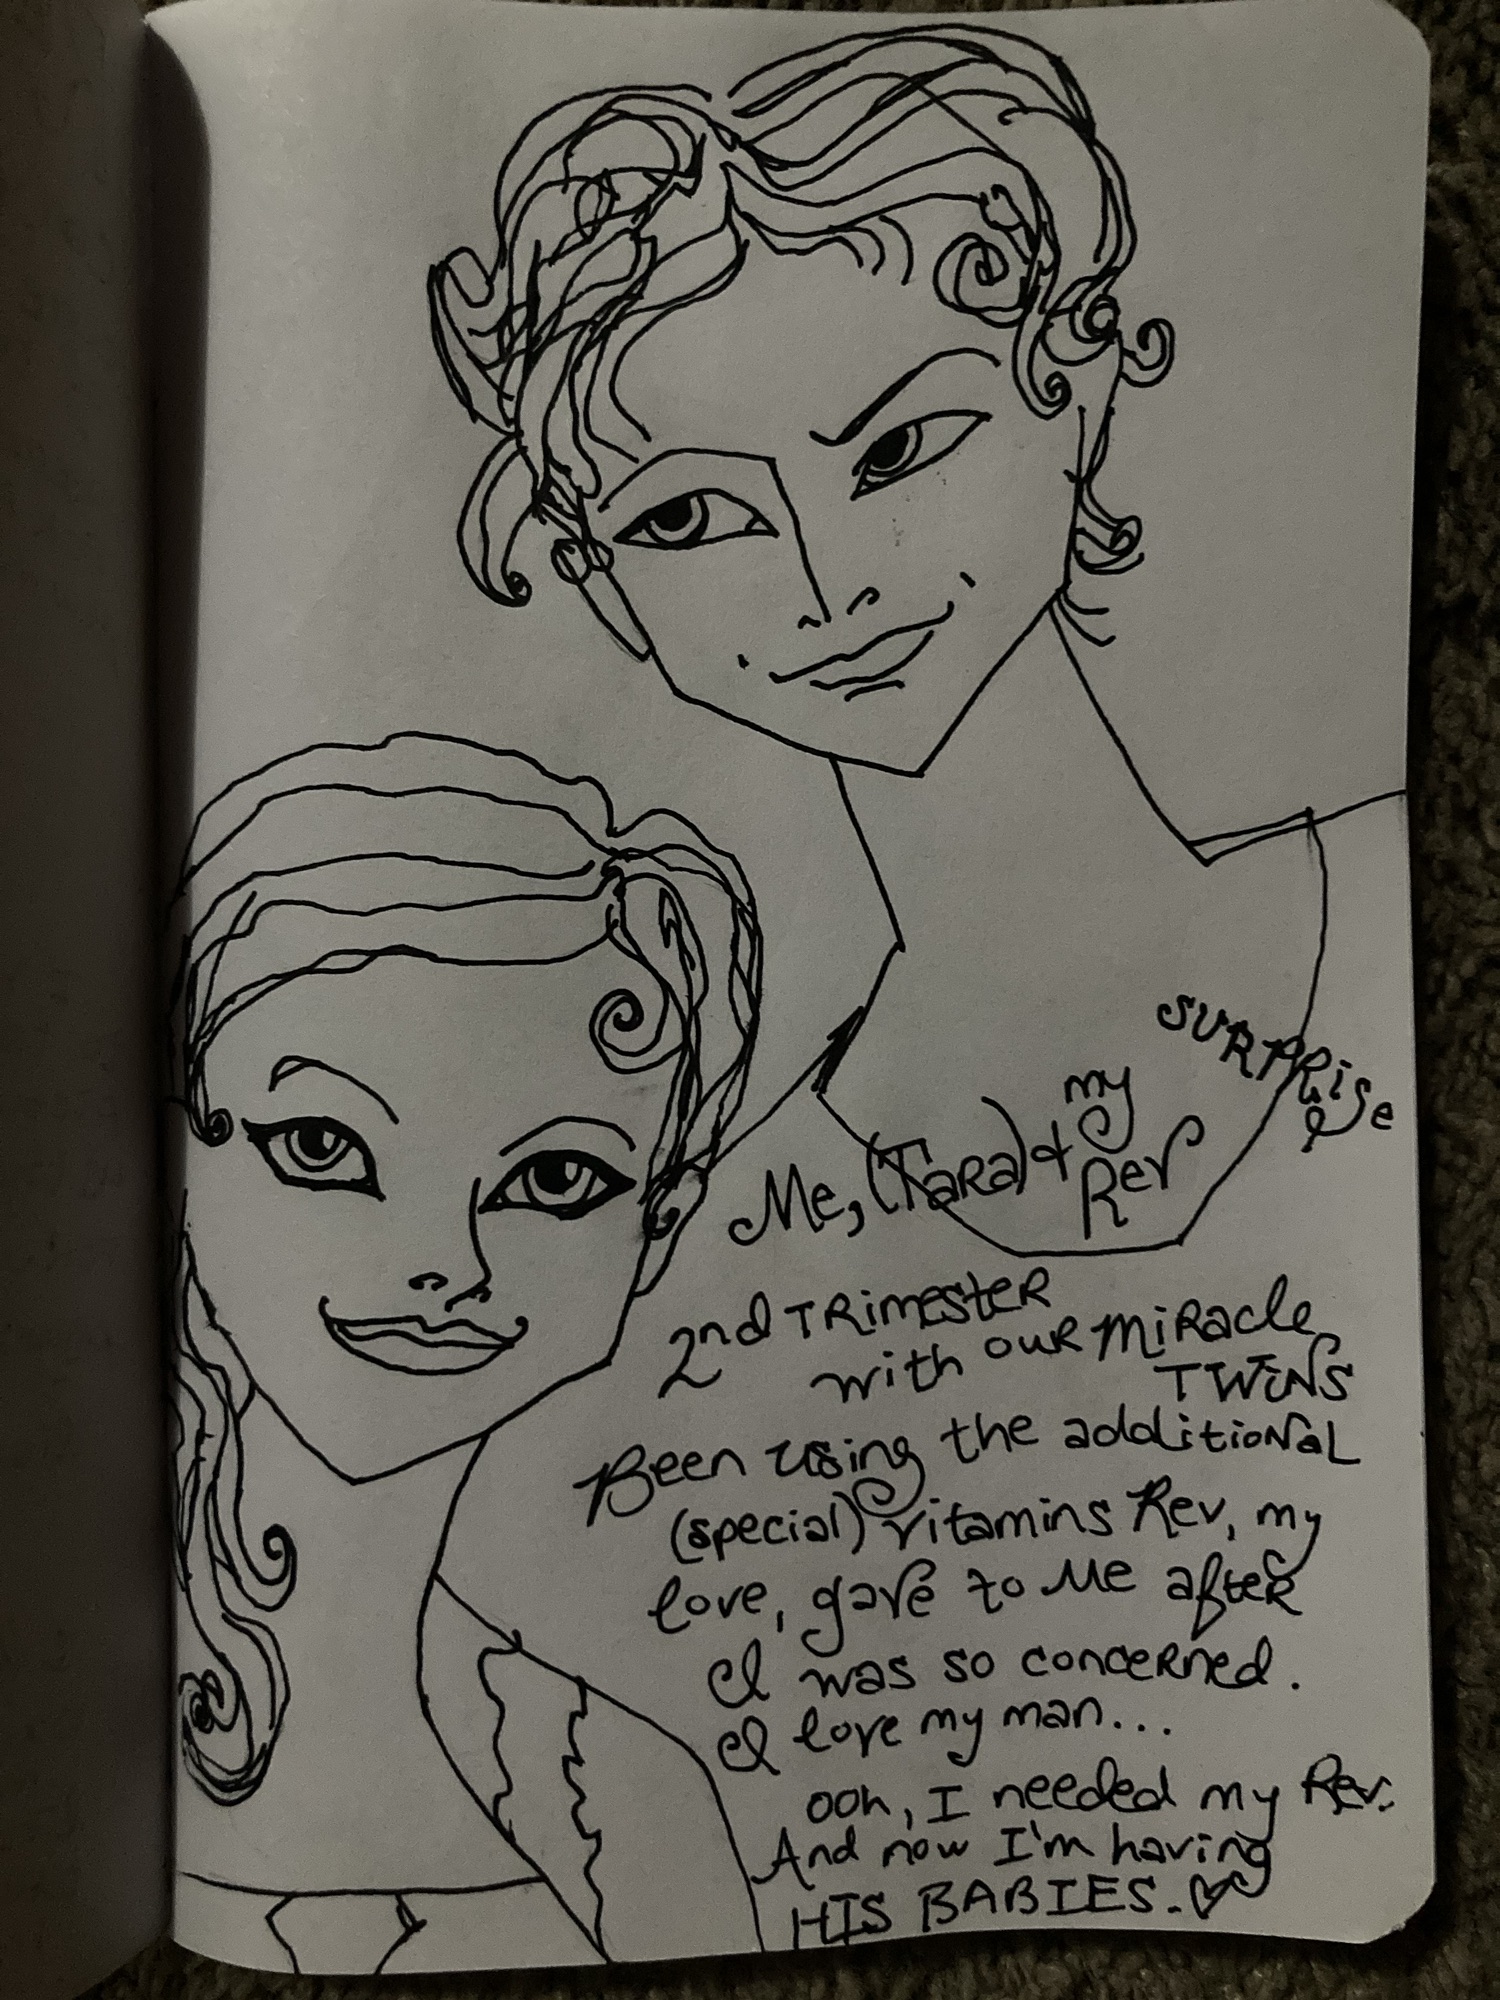 SURPRISE
Me, (Tara) + my Rev
2nd TRIMESTER
with OUR MIRACLE
TWINS
Been using the additional
(special) vitamins Rev, my
love, gave to Me after
I was so concerned.
I love my man...
ooh, I needed my Rev.
And now I'm having
HIS BABIES. ♡